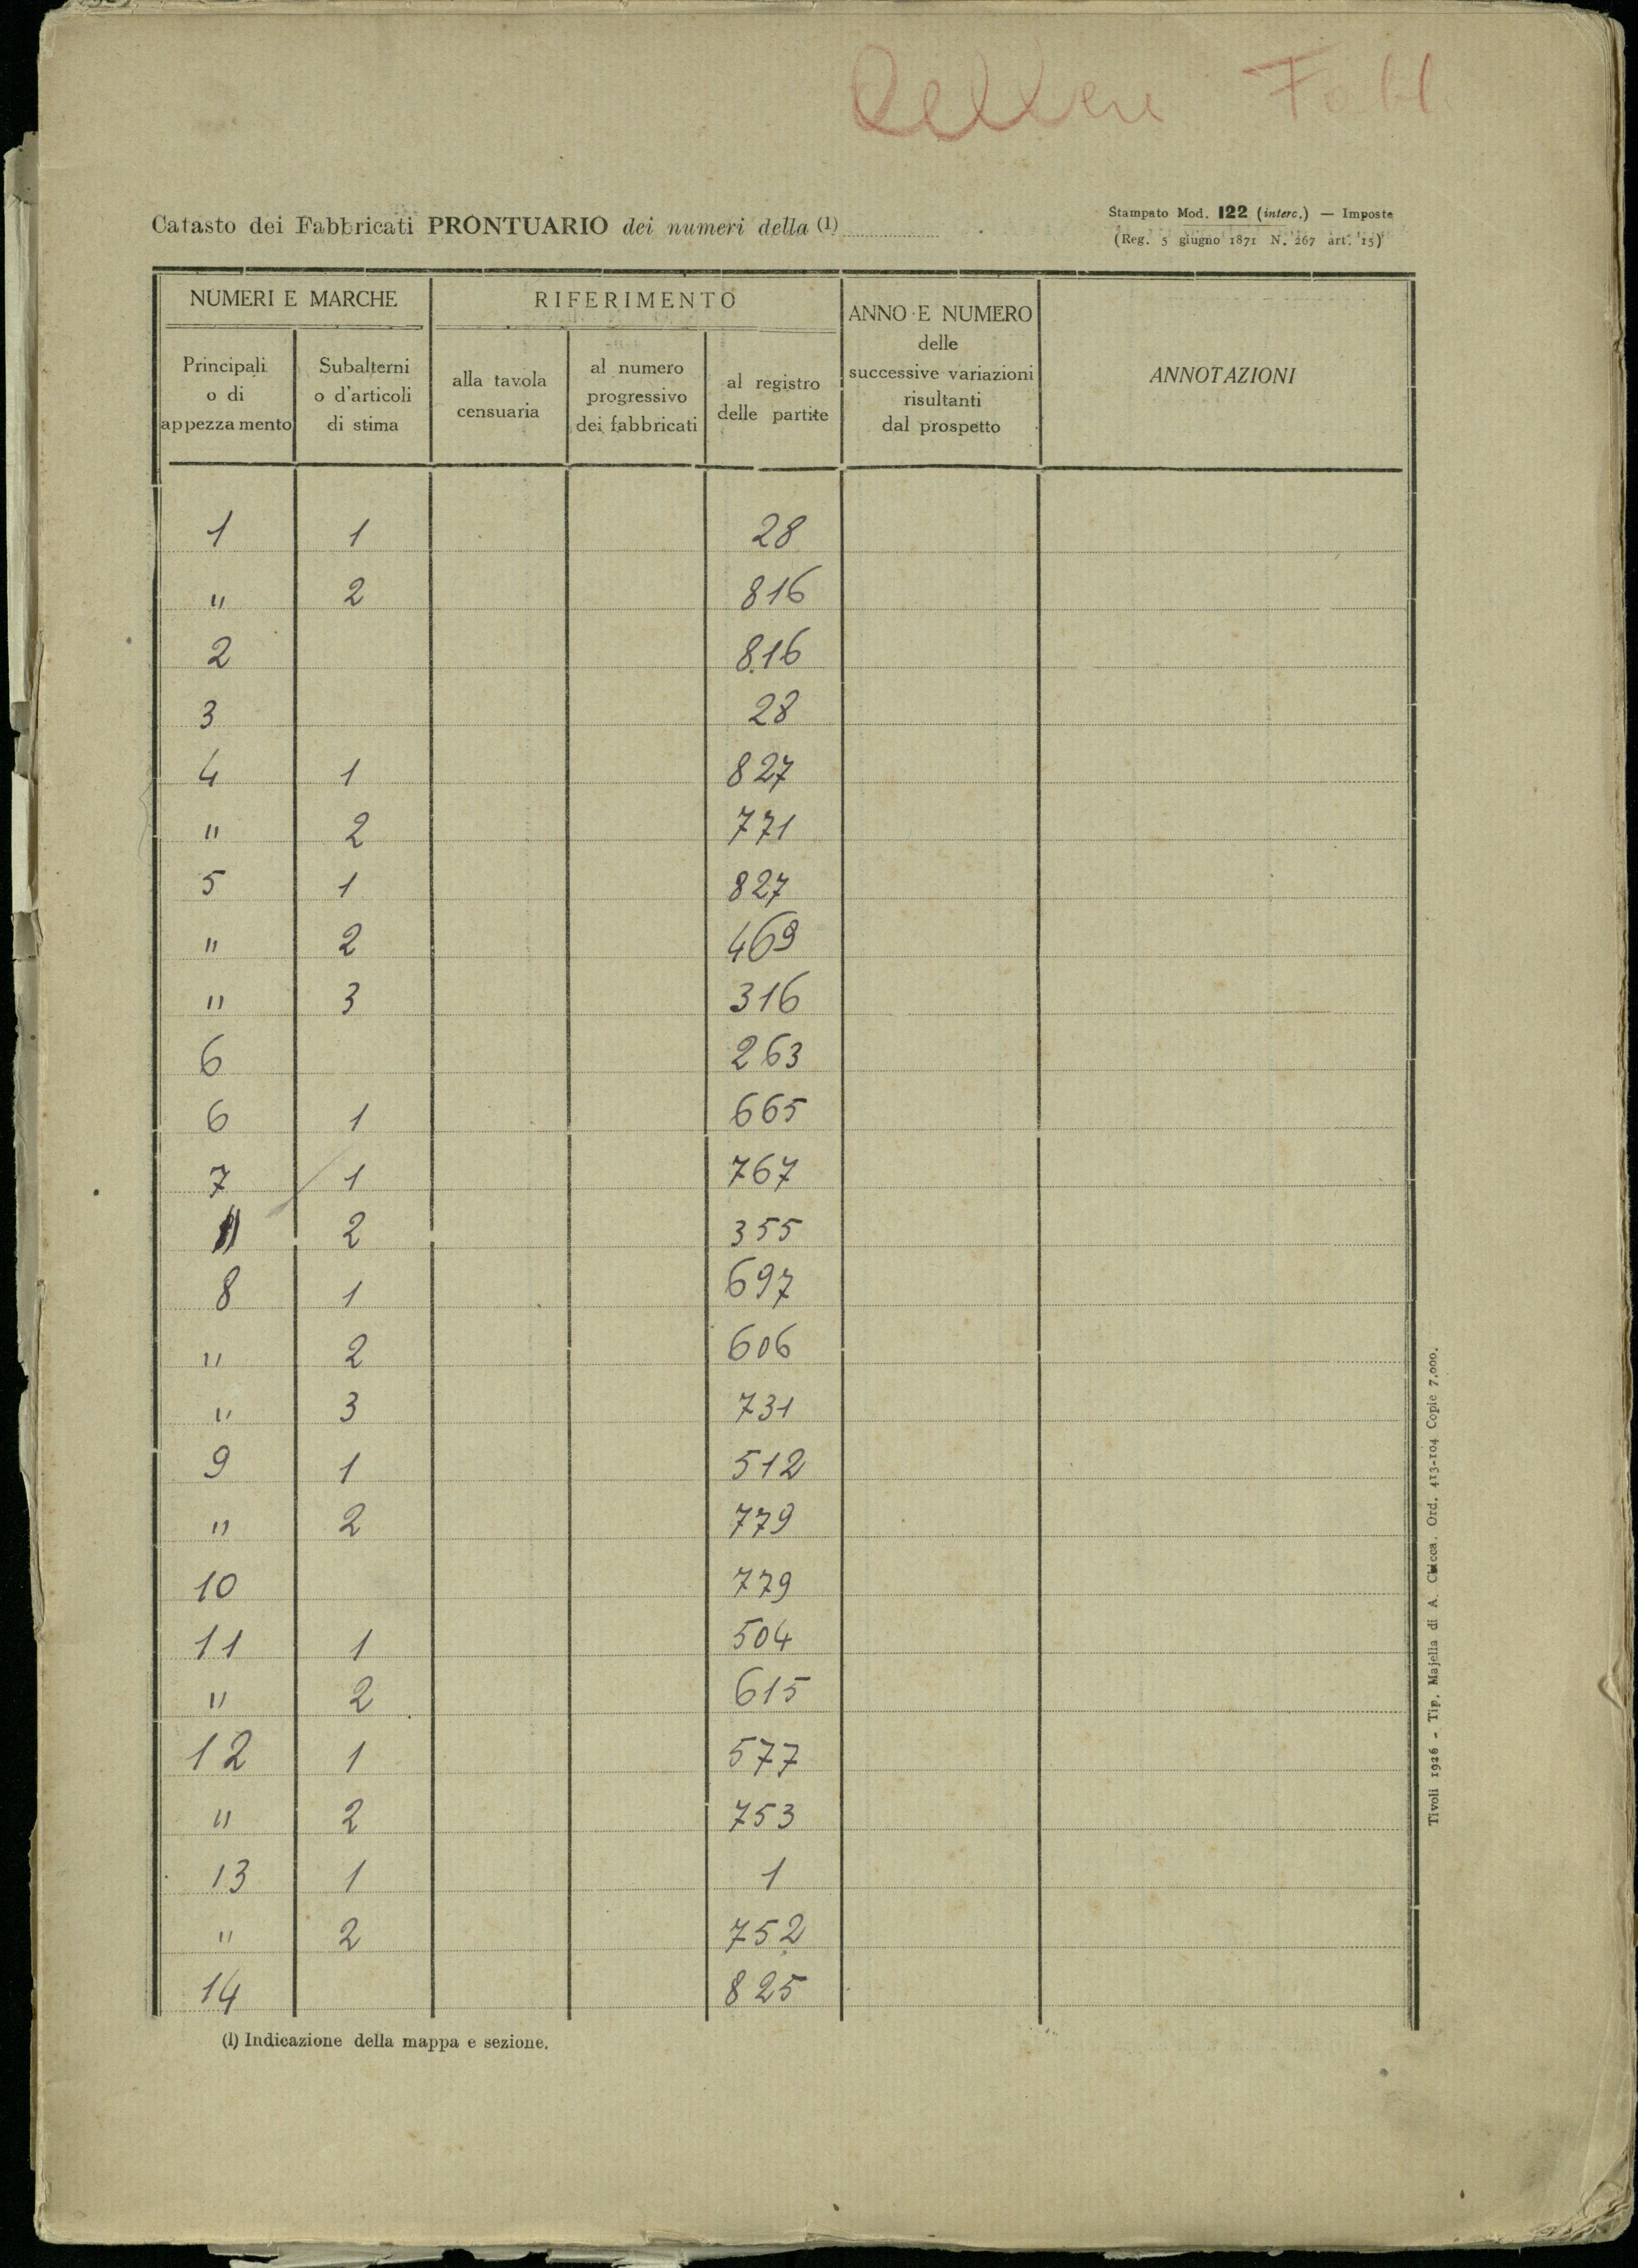 Cellere Fabb.
Catasto dei Fabbricati PRONTUARIO dei numeri della (1)
Stampato Mod. 122 (interc.) — Imposte
(Reg. 5 giugno 1871 N. 267 art. 15)
NUMERI E MARCHE
RIFERIMENTO
ANNO E NUMERO
delle
successive variazioni
risultanti
dal prospetto
ANNOTAZIONI
Principali
o di
appezzamento
Subalterni
o d'articoli
di stima
alla tavola
censuaria
al numero
progressivo
dei fabbricati
al registro
delle partite
1 1 28
" 2 816
2 816
3 28
4 1 827
" 2 771
5 1 827
" 2 469
" 3 316
6 263
6 1 665
7 1 767
" 2 355
8 1 697
" 2 606
" 3 731
9 1 512
" 2 779
10 779
11 1 504
" 2 615
12 1 577
" 2 753
13 1 1
" 2 752
14 825
(1) Indicazione della mappa e sezione.
Tivoli 1926 - Tip. Majella di A. Chicca. Ord. 413-104 Copie 7.000.